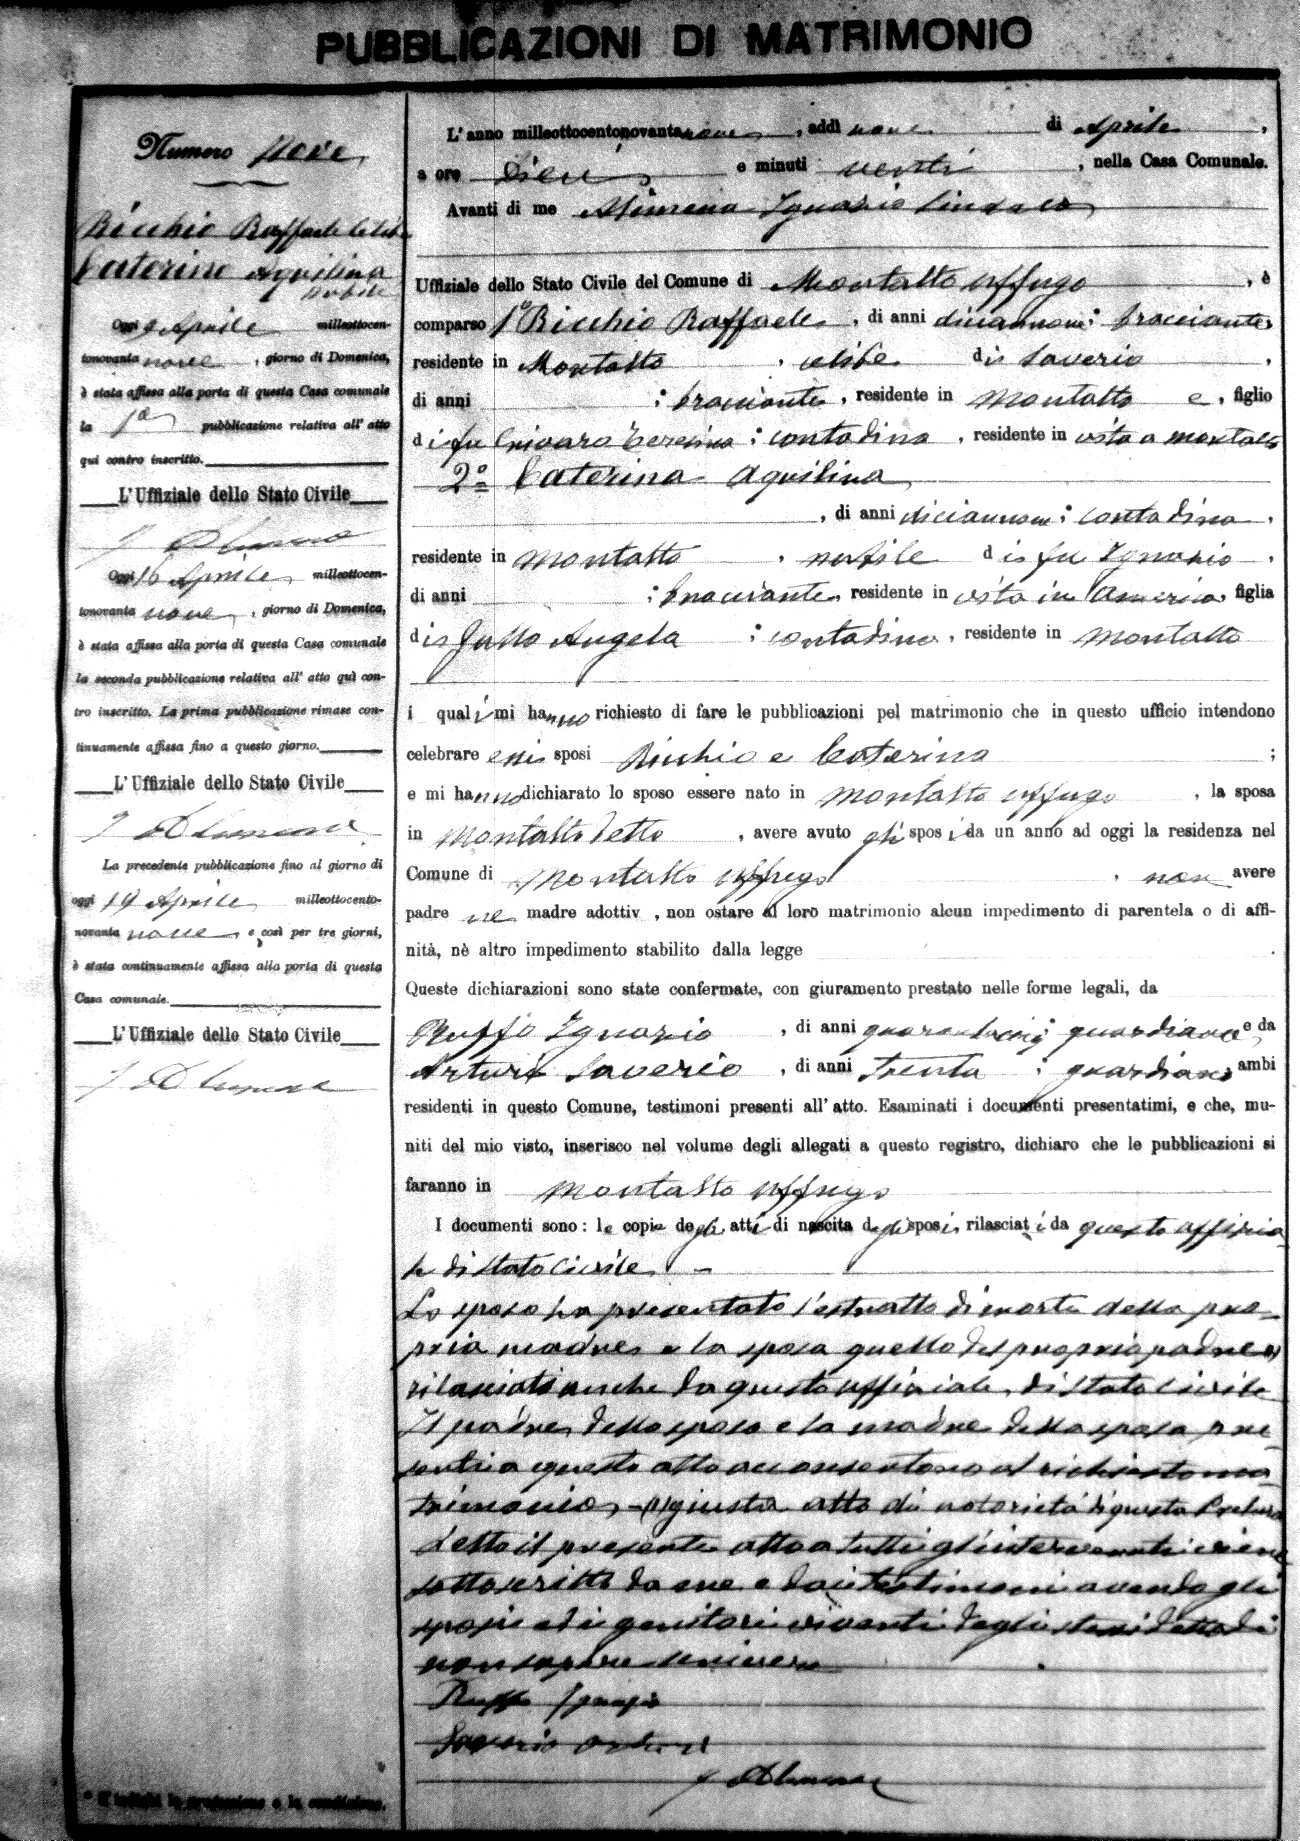 PUBBLICAZIONI DI MATRIMONIO
Numero Nove
Ricchio Raffaele celibe
Caterina Aquilina
nubile
Oggi 9 Aprile milleottocen-
tonovanta nove, giorno di Domenica,
è stata affissa alla porta di questa Casa comunale
la 1a pubblicazione relativa all' atto
qui contro inscritto.
L'Uffiziale dello Stato Civile
Oggi 16 Aprile milleottocen-
tonovanta nove, giorno di Domenica,
è stata affissa alla porta di questa Casa comunale
la seconda pubblicazione relativa all' atto quì con-
tro inscritto. La prima pubblicazione rimase con-
tinuamente affissa fino a questo giorno.
L'Uffiziale dello Stato Civile
La precedente pubblicazione fino al giorno di
oggi 19 Aprile milleottocento-
novanta nove e così per tre giorni,
è stata continuamente affissa alla porta di questa
Casa comunale.
L'Uffiziale dello Stato Civile
* Si indichi la professione o la condizione.
L'anno milleottocentonovanta nove, addì nove di Aprile,
a ore Dieci e minuti venti, nella Casa Comunale.
Avanti di me Ignazio Sindaco
Uffiziale dello Stato Civile del Comune di Montalto Uffugo, è
comparso 1º Ricchio Raffaele, di anni diciannove; bracciante,
residente in Montalto, celibe di Saverio,
di anni ; bracciante, residente in Montalto e, figlio
di fu Teresina; contadina, residente in vita a Montalto
2º Caterina Aquilina
, di anni diciannove; contadina,
residente in Montalto, nubile di fu Ignazio,
di anni ; bracciante, residente in vita in America, figlia
di Angela ; contadina, residente in Montalto
i quali mi hanno richiesto di fare le pubblicazioni pel matrimonio che in questo ufficio intendono
celebrare essi sposi Ricchio e Caterina ;
e mi hanno dichiarato lo sposo essere nato in Montalto Uffugo, la sposa
in Montalto detto, avere avuto gli sposi da un anno ad oggi la residenza nel
Comune di Montalto Uffugo, non avere
padre nè madre adottiv , non ostare al loro matrimonio alcun impedimento di parentela o di affi-
nità, nè altro impedimento stabilito dalla legge .
Queste dichiarazioni sono state confermate, con giuramento prestato nelle forme legali, da
Ruffo Ignazio, di anni ; guardiano, e da
Arturi Saverio, di anni trenta ; guardiano, ambi
residenti in questo Comune, testimoni presenti all' atto. Esaminati i documenti presentatimi, e che, mu-
niti del mio visto, inserisco nel volume degli allegati a questo registro, dichiaro che le pubblicazioni si
faranno in Montalto Uffugo
I documenti sono: le copie degli atti di nascita degli sposi rilasciati da questo uffizia-
le di Stato Civile –
Lo sposo ha presentato l'estratto di morte della pro-
pria madre e la sposa quello del proprio padre (1)
rilasciati anche da questo uffiziale di Stato Civile
Il padre dello sposo e la madre della sposa pre-
senti a questo atto acconsentono al richiesto ma-
trimonio – (1) giusta atto di notorietà di questa Pretura
Letto il presente atto a tutti gl'intervenuti viene
sottoscritto da me e dai testimoni avendo gli
sposi ed i genitori viventi degli stessi detto di
non sapere scrivere
Ruffo Ignazio
Saverio Arturi